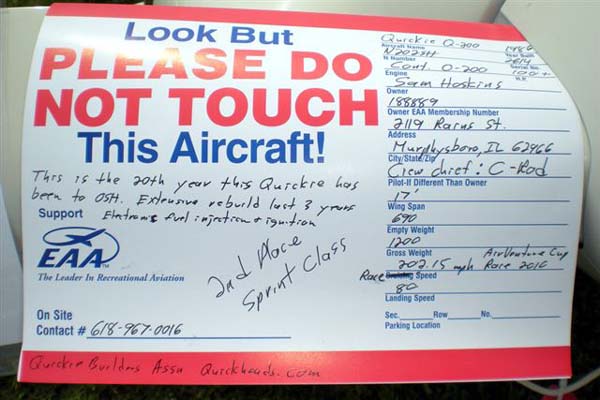 Look But
PLEASE DO
NOT TOUCH
This Aircraft!
This is the 20th year this Quickie has
been to OSH. Extensive rebuild last 3 years
Electronic fuel injection & ignition
Support
EAA
The Leader In Recreational Aviation
2nd Place
Sprint Class
On Site
Contact # 618-967-0016
Quickie Builders Assn Quickheads.com
Quickie Q-200 1986
Aircraft Name Year Built
N202SH 2614
N Number Serial No.
Cont. O-200 100+
Engine H.P.
Sam Hoskins
Owner
188889
Owner EAA Membership Number
2119 St.
Address
Murphysboro, IL 62966
City/State/Zip
Crew chief: C-Rod
Pilot-If Different Than Owner
17'
Wing Span
690
Empty Weight
1200
Gross Weight AirVenture Cup
202.15 mph Race 2010
Race Speed
80
Landing Speed
Sec. Row No.
Parking Location